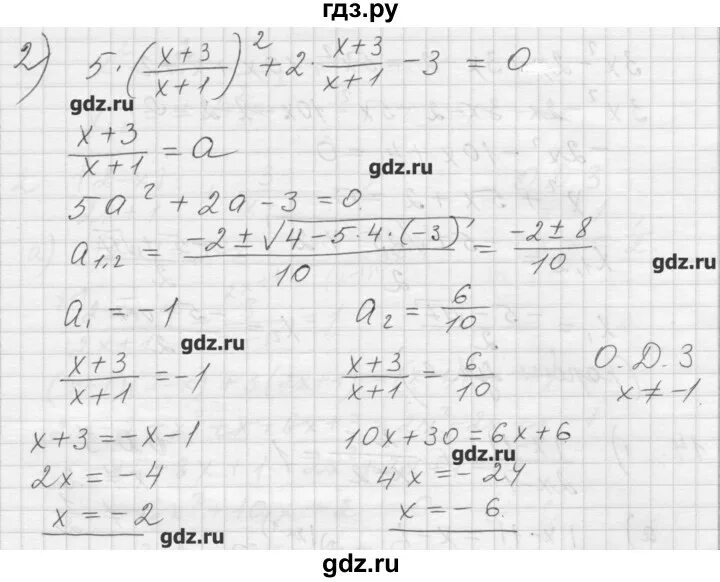 гдз.ру
2) 5·((x+3)/(x+1))² + 2·(x+3)/(x+1) − 3 = 0
gdz.ru
(x+3)/(x+1) = a
gdz.ru
5a² + 2a − 3 = 0
a₁,₂ = (−2 ± √(4 − 5·4·(−3)))/10 = (−2 ± 8)/10
gdz.ru
a₁ = −1 a₂ = 6/10
gdz.ru
(x+3)/(x+1) = −1 (x+3)/(x+1) = 6/10 О.Д.З
x ≠ −1
x+3 = −x−1 10x+30 = 6x+6
gdz.ru
2x = −4 4x = −24
x = −2 x = −6
gdz.ru
gdz.ru